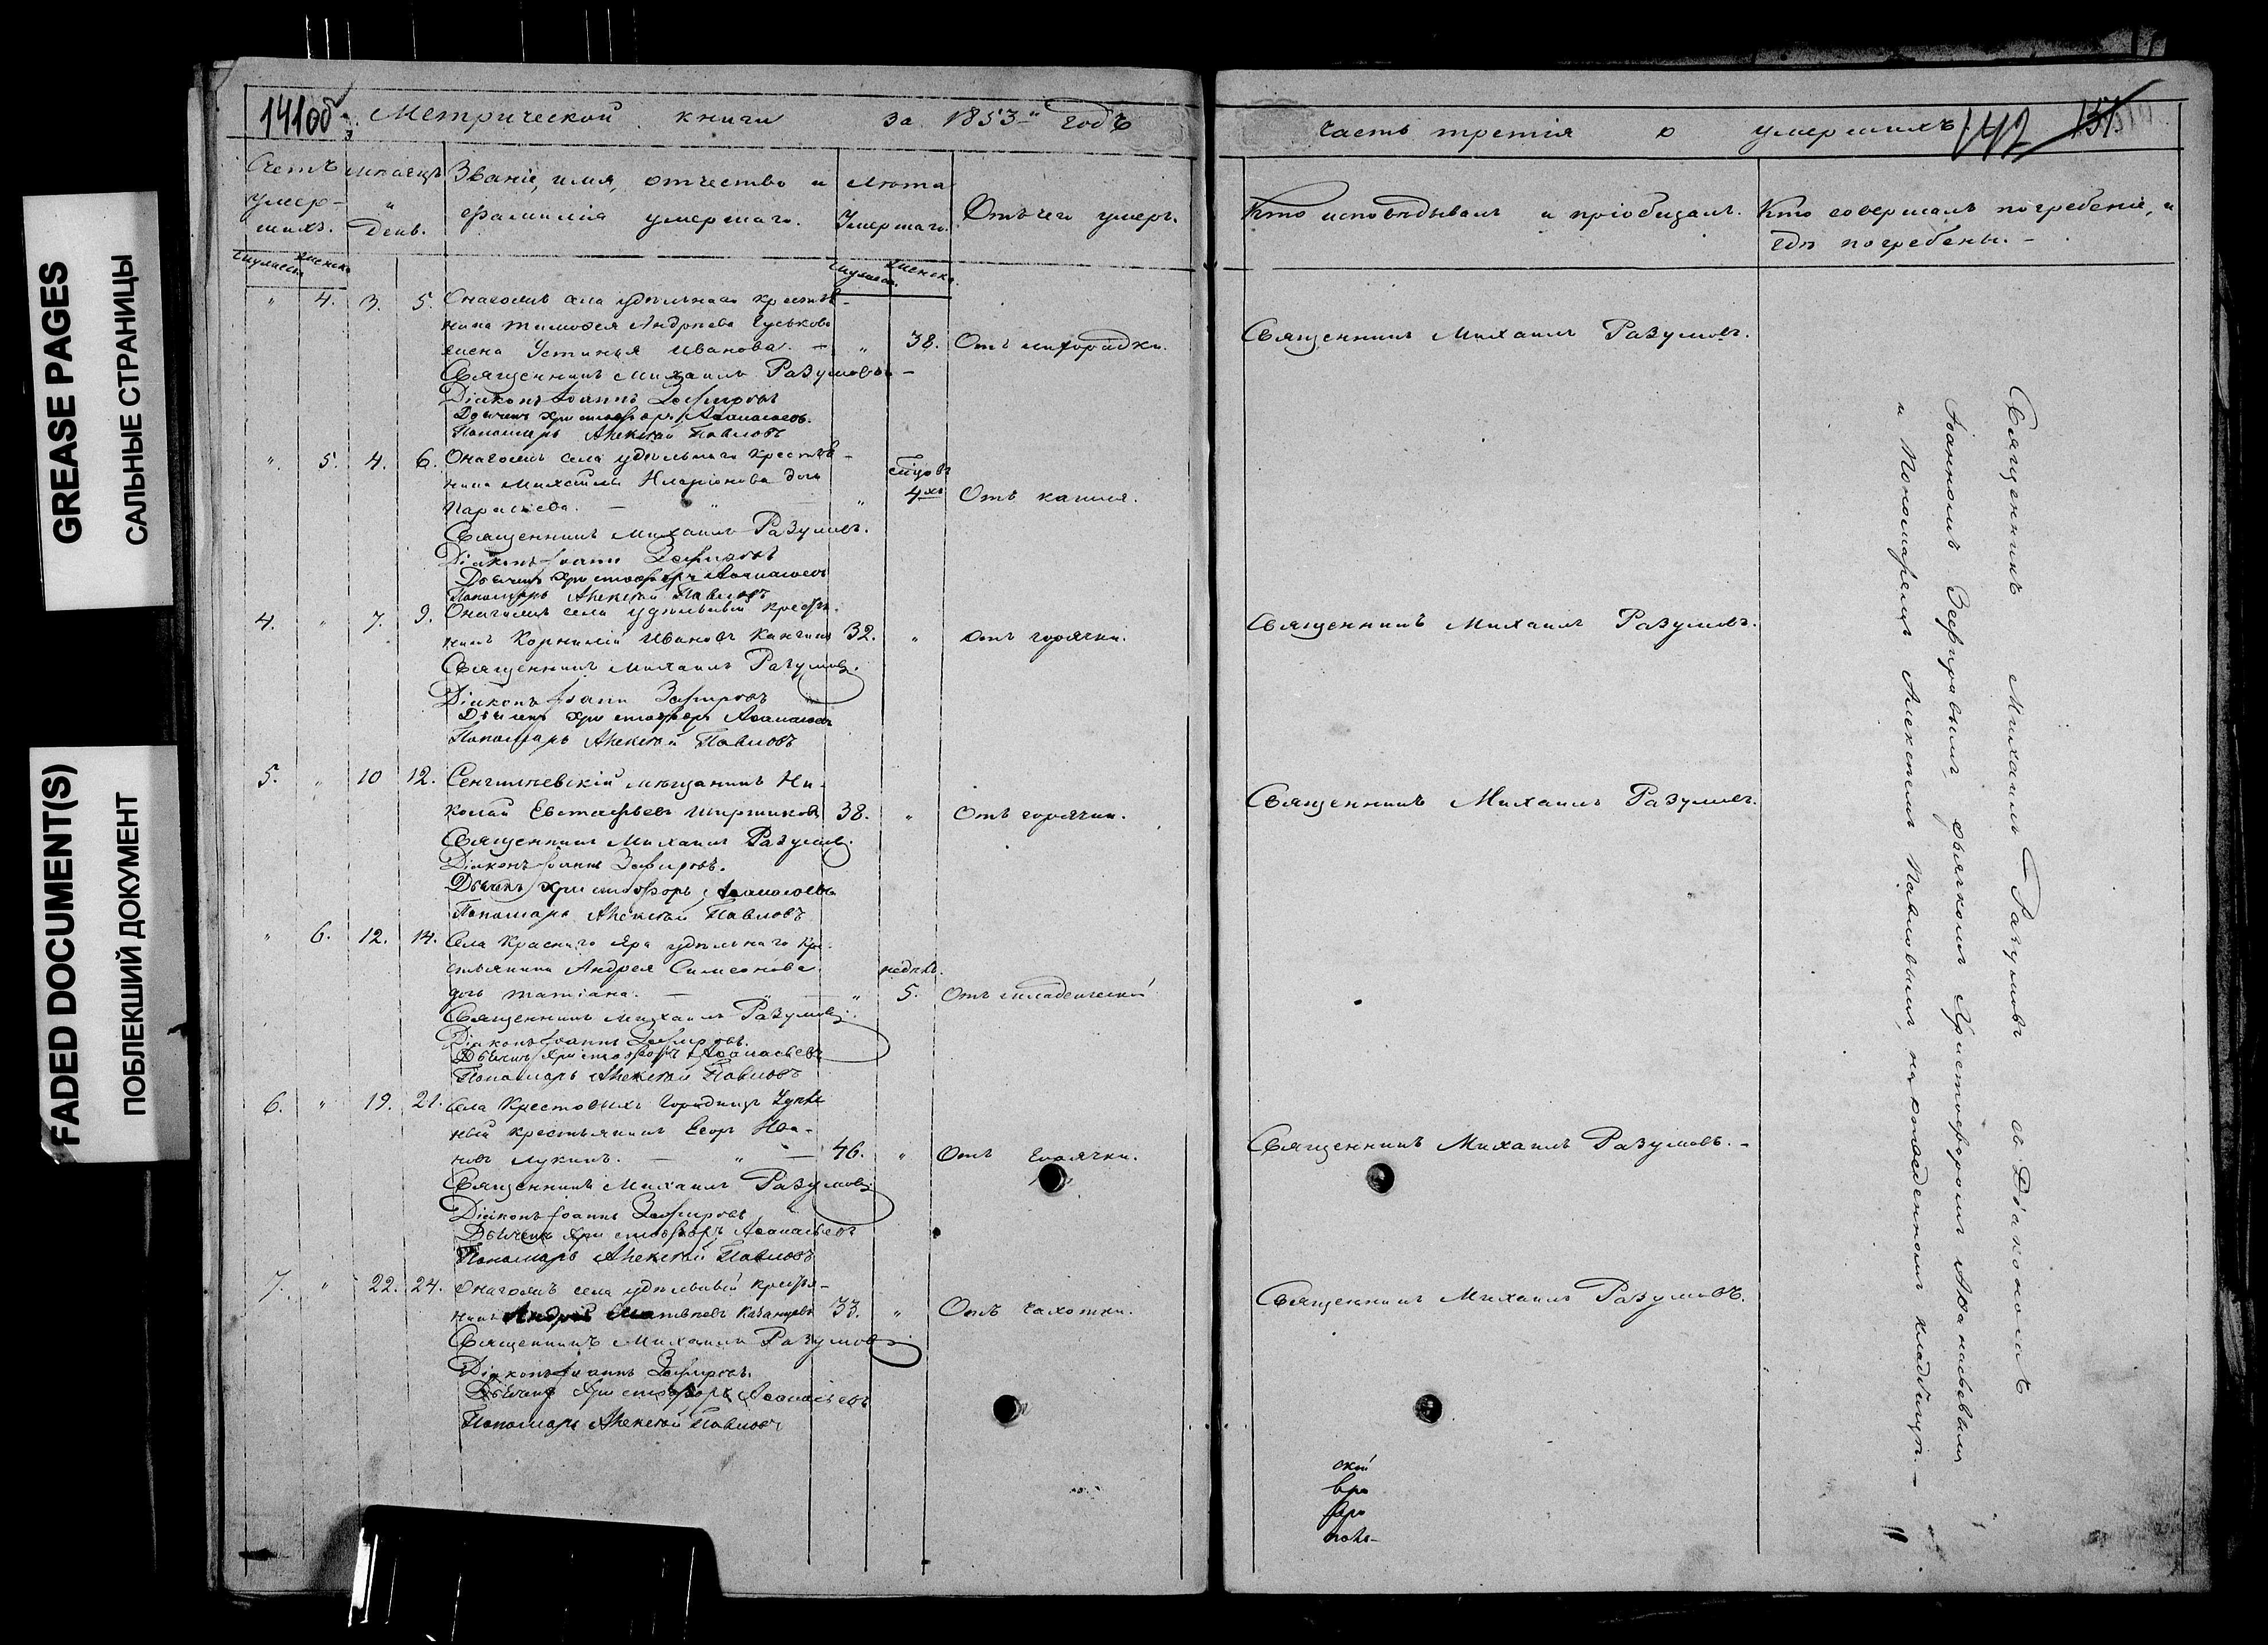 GREASE PAGES
САЛЬНЫЕ СТРАНИЦЫ
FADED DOCUMENT(S)
ПОБЛЕКШИЙ ДОКУМЕНТ
141об
Метрической книги за 1853 годъ
Счетъ умер-
шихъ.
Мѣсяцъ и
День.
Званіе, имя, отчество и
фамилія умершаго.
Лѣта
Умершаго.
Отъ чего умеръ.
Мужеска Женска
Мужеска. Женска.
" 4. 3. 5. Онагожъ села удѣльнаго крестья-
нина Тимофея Андреева Гуськова
жена Устинья Иванова. — " 38. Отъ лихорадки.
Священникъ Михаилъ Разумовъ
Діаконъ Іоаннъ Зефировъ
Дьячекъ Христофоръ Аѳанасьевъ.
Пономарь Алексѣй Павловъ
" 5. 4. 6. Онагожъ села удѣльнаго крестья-
нина Михаила Иларіонова дочь
Параскева. — " 4хъ Отъ кашля.
Священникъ Михаилъ Разумовъ.
Діаконъ Іоаннъ Зефировъ
Дьячекъ Христофоръ Аѳанасьевъ
Пономарь Алексѣй Павловъ
4. " 7. 9. Онагожъ села удѣльный крестья-
нинъ Корнилій Ивановъ 32. " Отъ горячки.
Священникъ Михаилъ Разумовъ.
Діаконъ Іоаннъ Зефировъ
Дьячекъ Христофоръ Аѳанасьевъ
Пономарь Алексѣй Павловъ
5. " 10 12. Сенгилѣевскій мѣщанинъ Ни-
колай Евстафьевъ 38. " Отъ горячки.
Священникъ Михаилъ Разумовъ.
Діаконъ Іоаннъ Зефировъ.
Дьячекъ Христофоръ Аѳанасьевъ
Пономарь Алексѣй Павловъ
" 6. 12. 14. Села Краснаго Яра удѣльнаго кре-
стьянина Андрея Симеонова недѣль.
дочь Татіана. — " 5. Отъ младенческой
Священникъ Михаилъ Разумовъ.
Діаконъ Іоаннъ Зефировъ.
Дьячекъ Христофоръ Аѳанасьевъ
Пономарь Алексѣй Павловъ
6. " 19. 21. Села Крестовыхъ Городищъ Удѣль-
ный крестьянинъ Егоръ Ива-
новъ Лукинъ. — " — 46. " Отъ Горячки.
Священникъ Михаилъ Разумовъ.
Діаконъ Іоаннъ Зефировъ
Дьячекъ Христофоръ Аѳанасьевъ
Пономарь Алексѣй Павловъ
7. " 22. 24. Онагожъ села удѣльный крестья-
нинъ Андрей Матвѣевъ Казанцевъ 33. " Отъ Чахотки.
Священникъ Михаилъ Разумовъ
Діаконъ Іоаннъ Зефировъ.
Дьячекъ Христофоръ Аѳанасьевъ
Пономарь Алексѣй Павловъ
часть третія о умершихъ.
142
Кто исповѣдывалъ и пріобщалъ.
Кто совершалъ погребеніе, и
гдѣ погребены. —
Священникъ Михаилъ Разумовъ.
Священникъ Михаилъ Разумовъ.
Священникъ Михаилъ Разумовъ.
Священникъ Михаилъ Разумовъ. —
Священникъ Михаилъ Разумовъ.
Священникъ Михаилъ Разумовъ съ Діакономъ
Іоанномъ Зефировымъ, дьячкомъ Христофоромъ Аѳанасьевымъ
и Пономаремъ Алексѣемъ Павловымъ, на приходскомъ кладбищѣ. —